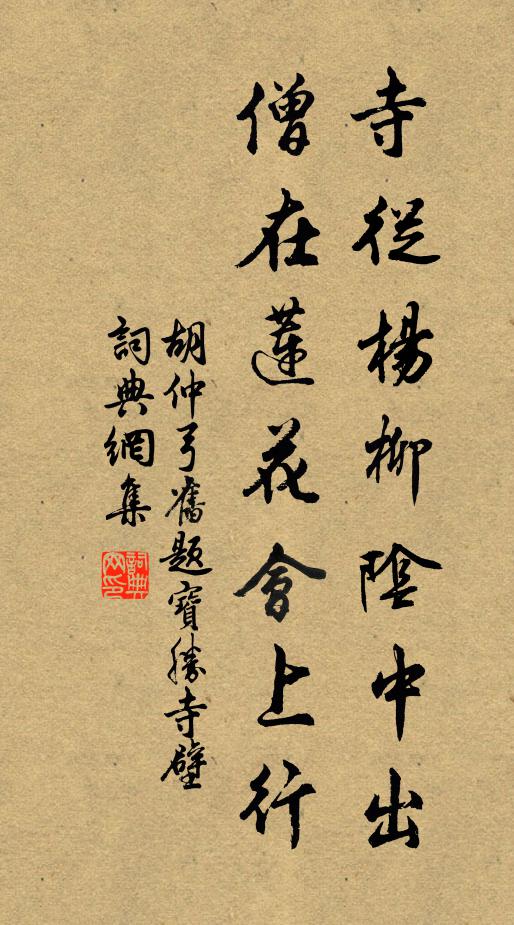 寺從楊柳陰中出
僧在蓮花會上行
胡仲弓舊題寶勝寺壁
詞典網集
詞典
网印